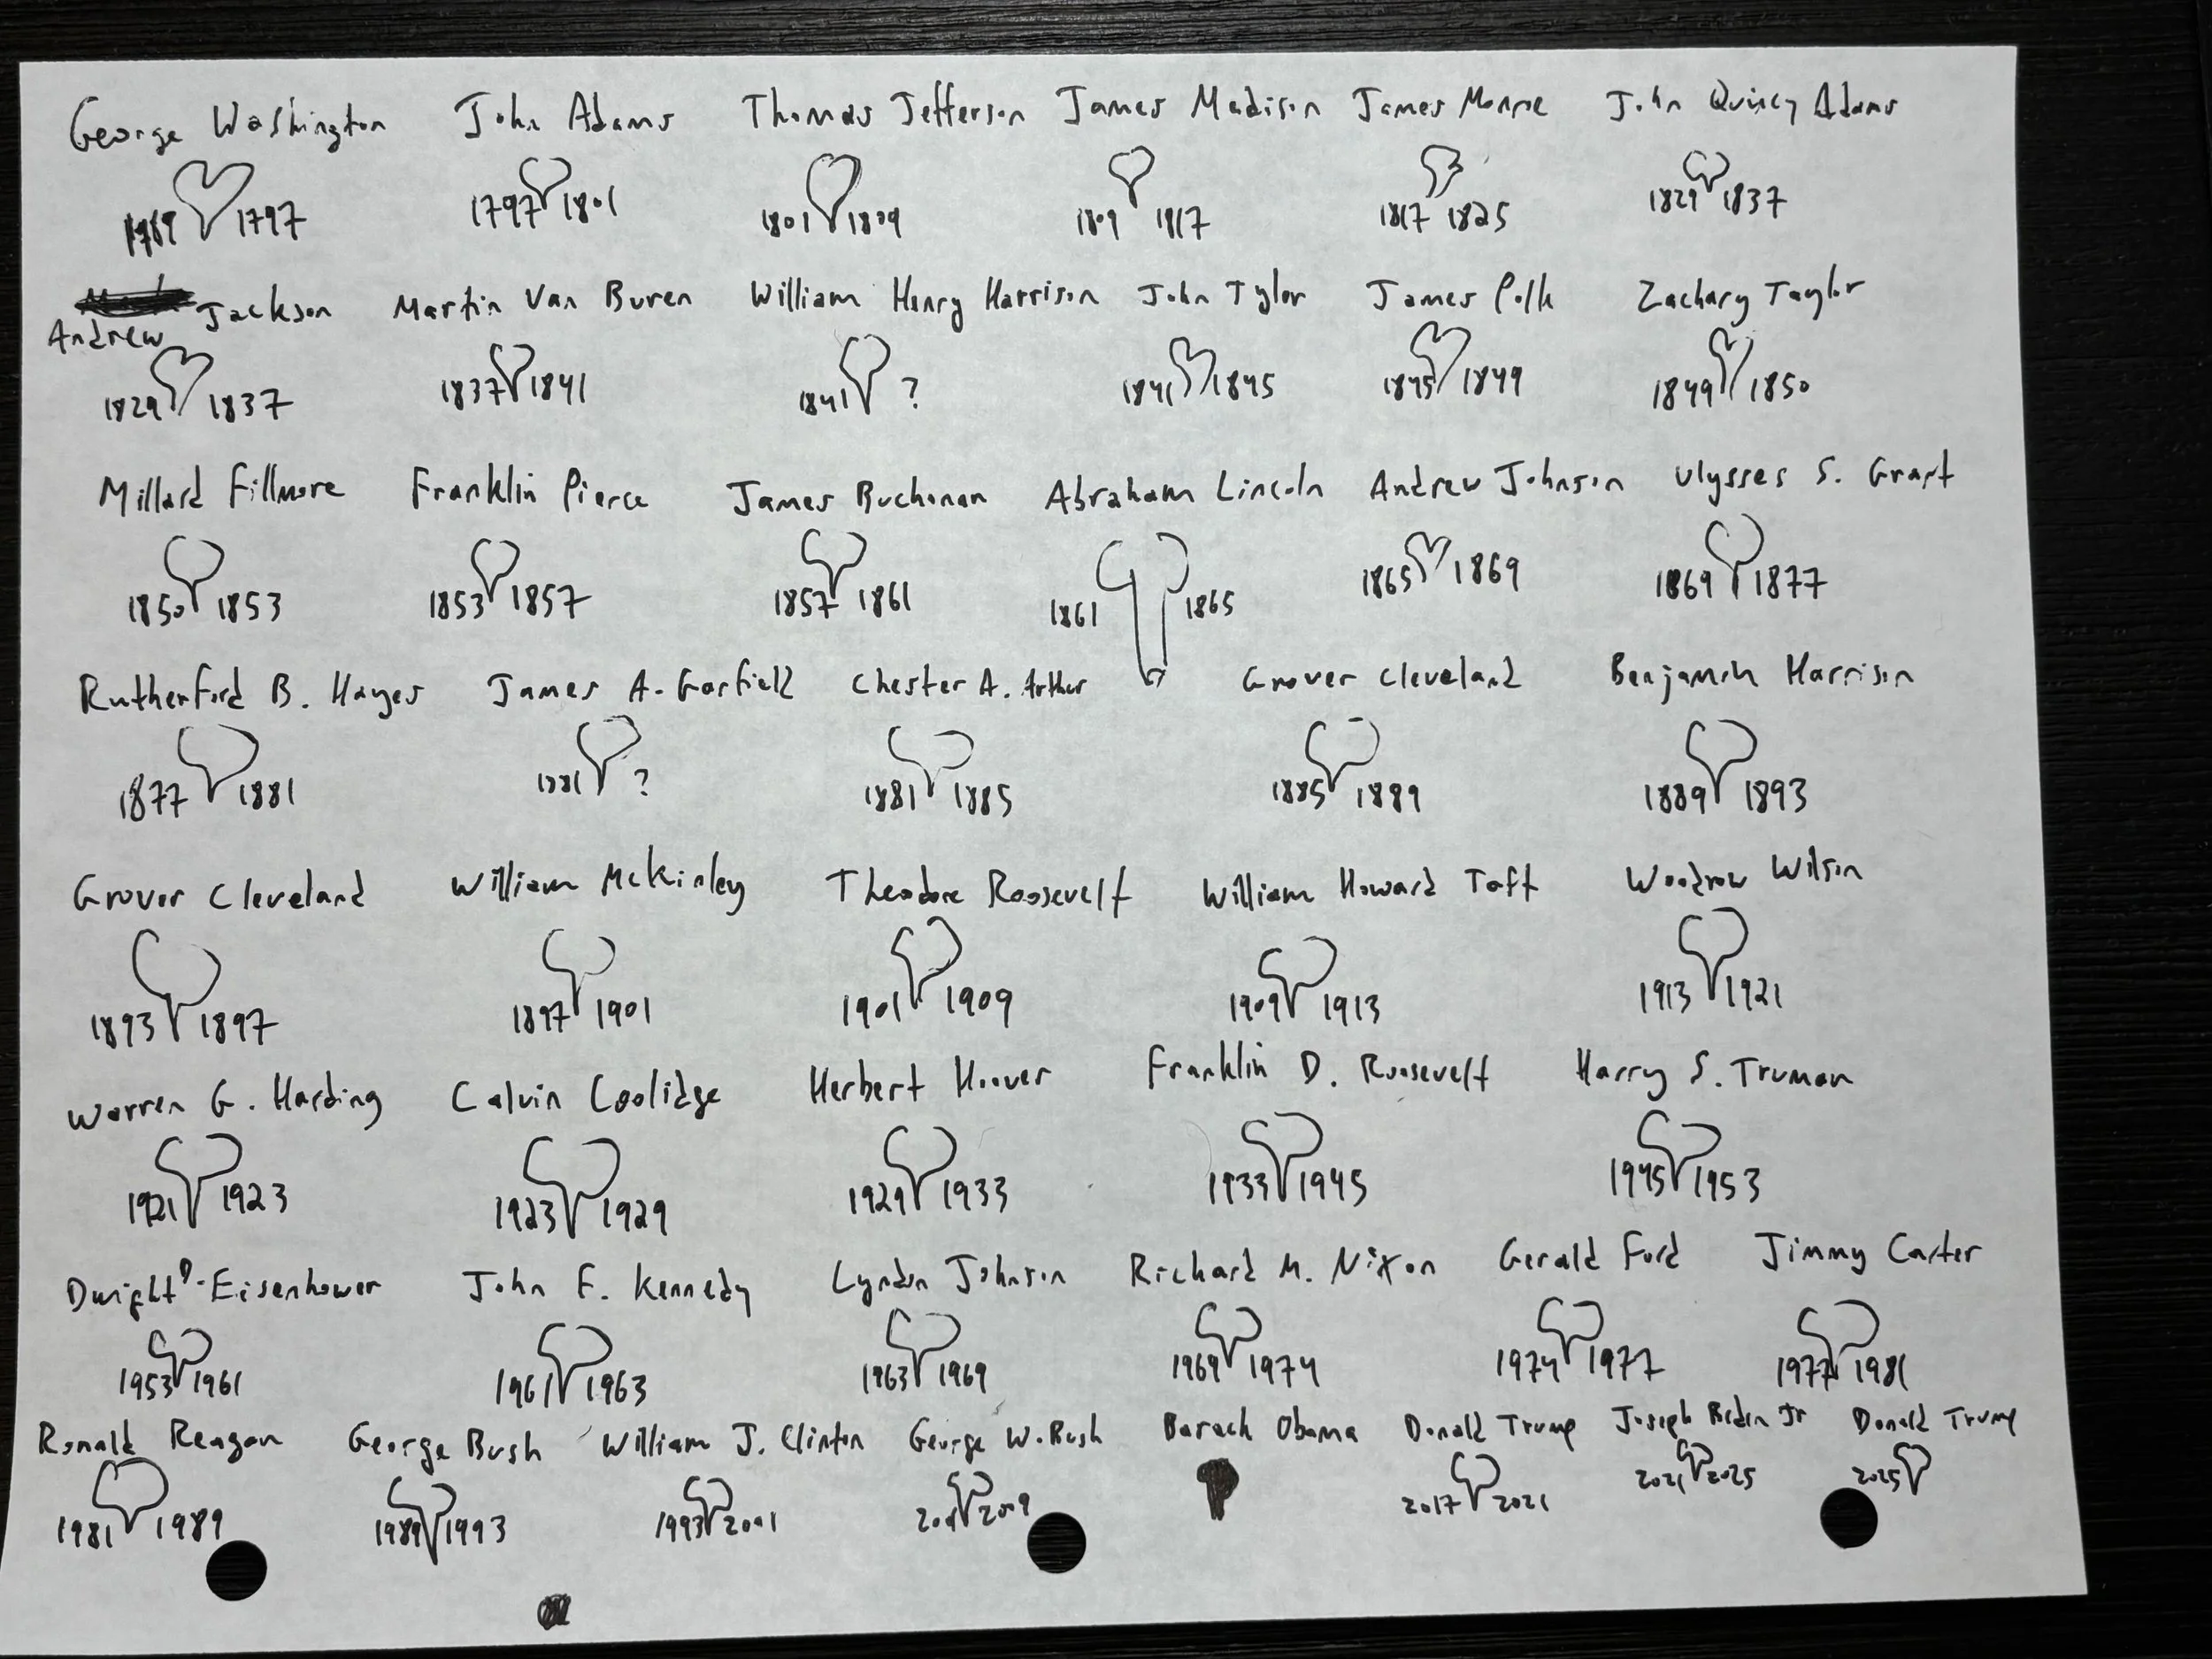 George Washington John Adams Thomas Jefferson James Madison James Monroe John Quincy Adams
1789 1797 1797 1801 1801 1809 1809 1817 1817 1825 1829 1837
Andrew Jackson Martin Van Buren William Henry Harrison John Tylor James Polk Zachary Taylor
1829 1837 1837 1841 1841 ? 1841 1845 1845 1849 1849 1850
Millard Fillmore Franklin Pierce James Buchanan Abraham Lincoln Andrew Johnson Ulysses S. Grant
1850 1853 1853 1857 1857 1861 1861 1865 1865 1869 1869 1877
Rutherford B. Hayes James A. Garfield Chester A. Arthur Grover Cleveland Benjamin Harrison
1877 1881 1881 ? 1881 1885 1885 1889 1889 1893
Grover Cleveland William McKinley Theodore Roosevelt William Howard Taft Woodrow Wilson
1893 1897 1897 1901 1901 1909 1909 1913 1913 1921
Warren G. Harding Calvin Coolidge Herbert Hoover Franklin D. Roosevelt Harry S. Truman
1921 1923 1923 1929 1929 1933 1933 1945 1945 1953
Dwight D. Eisenhower John F. Kennedy Lyndon Johnson Richard M. Nixon Gerald Ford Jimmy Carter
1953 1961 1961 1963 1963 1969 1969 1974 1974 1977 1977 1981
Ronald Reagan George Bush William J. Clinton George W. Bush Barack Obama Donald Trump Joseph Biden Jr Donald Trump
1981 1989 1989 1993 1993 2001 2001 2009 2017 2021 2021 2025 2025